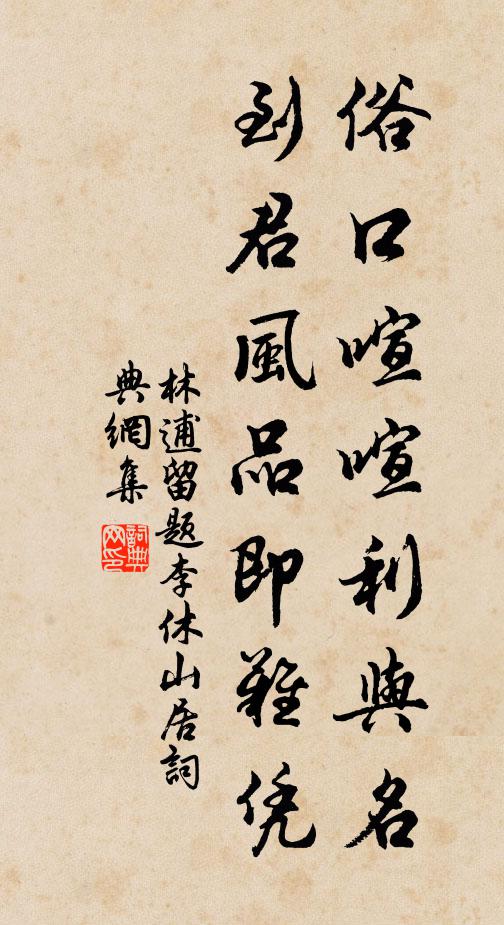 俗口喧喧利與名
到君風品即難凭
林逋留題李休山居詞
典網集
詞典
网印